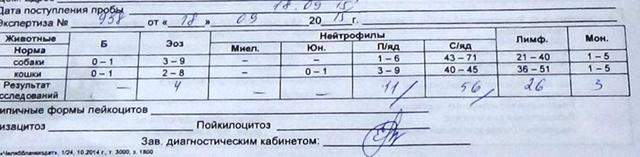 Дата поступления пробы 18.09.15
Экспертиза № 958 от « 18 » 09 2015 г.
Животные Б Эоз Нейтрофилы Лимф. Мон.
Норма Миел. Юн. П/яд С/яд
собаки 0 – 1 3 – 9 – – 1 – 6 43 – 71 21 – 40 1 – 5
кошки 0 – 1 2 – 8 – 0 – 1 3 – 9 40 – 45 36 – 51 1 – 5
Результат – 4 – – 11 / 56 / 26 3
сследований
ипичные формы лейкоцитов
изацитоз Пойкилоцитоз
Зав. диагностическим кабинетом:
«Челяббланкиздат», 1/24, 10.2014 г., т. 3000, з. 1800